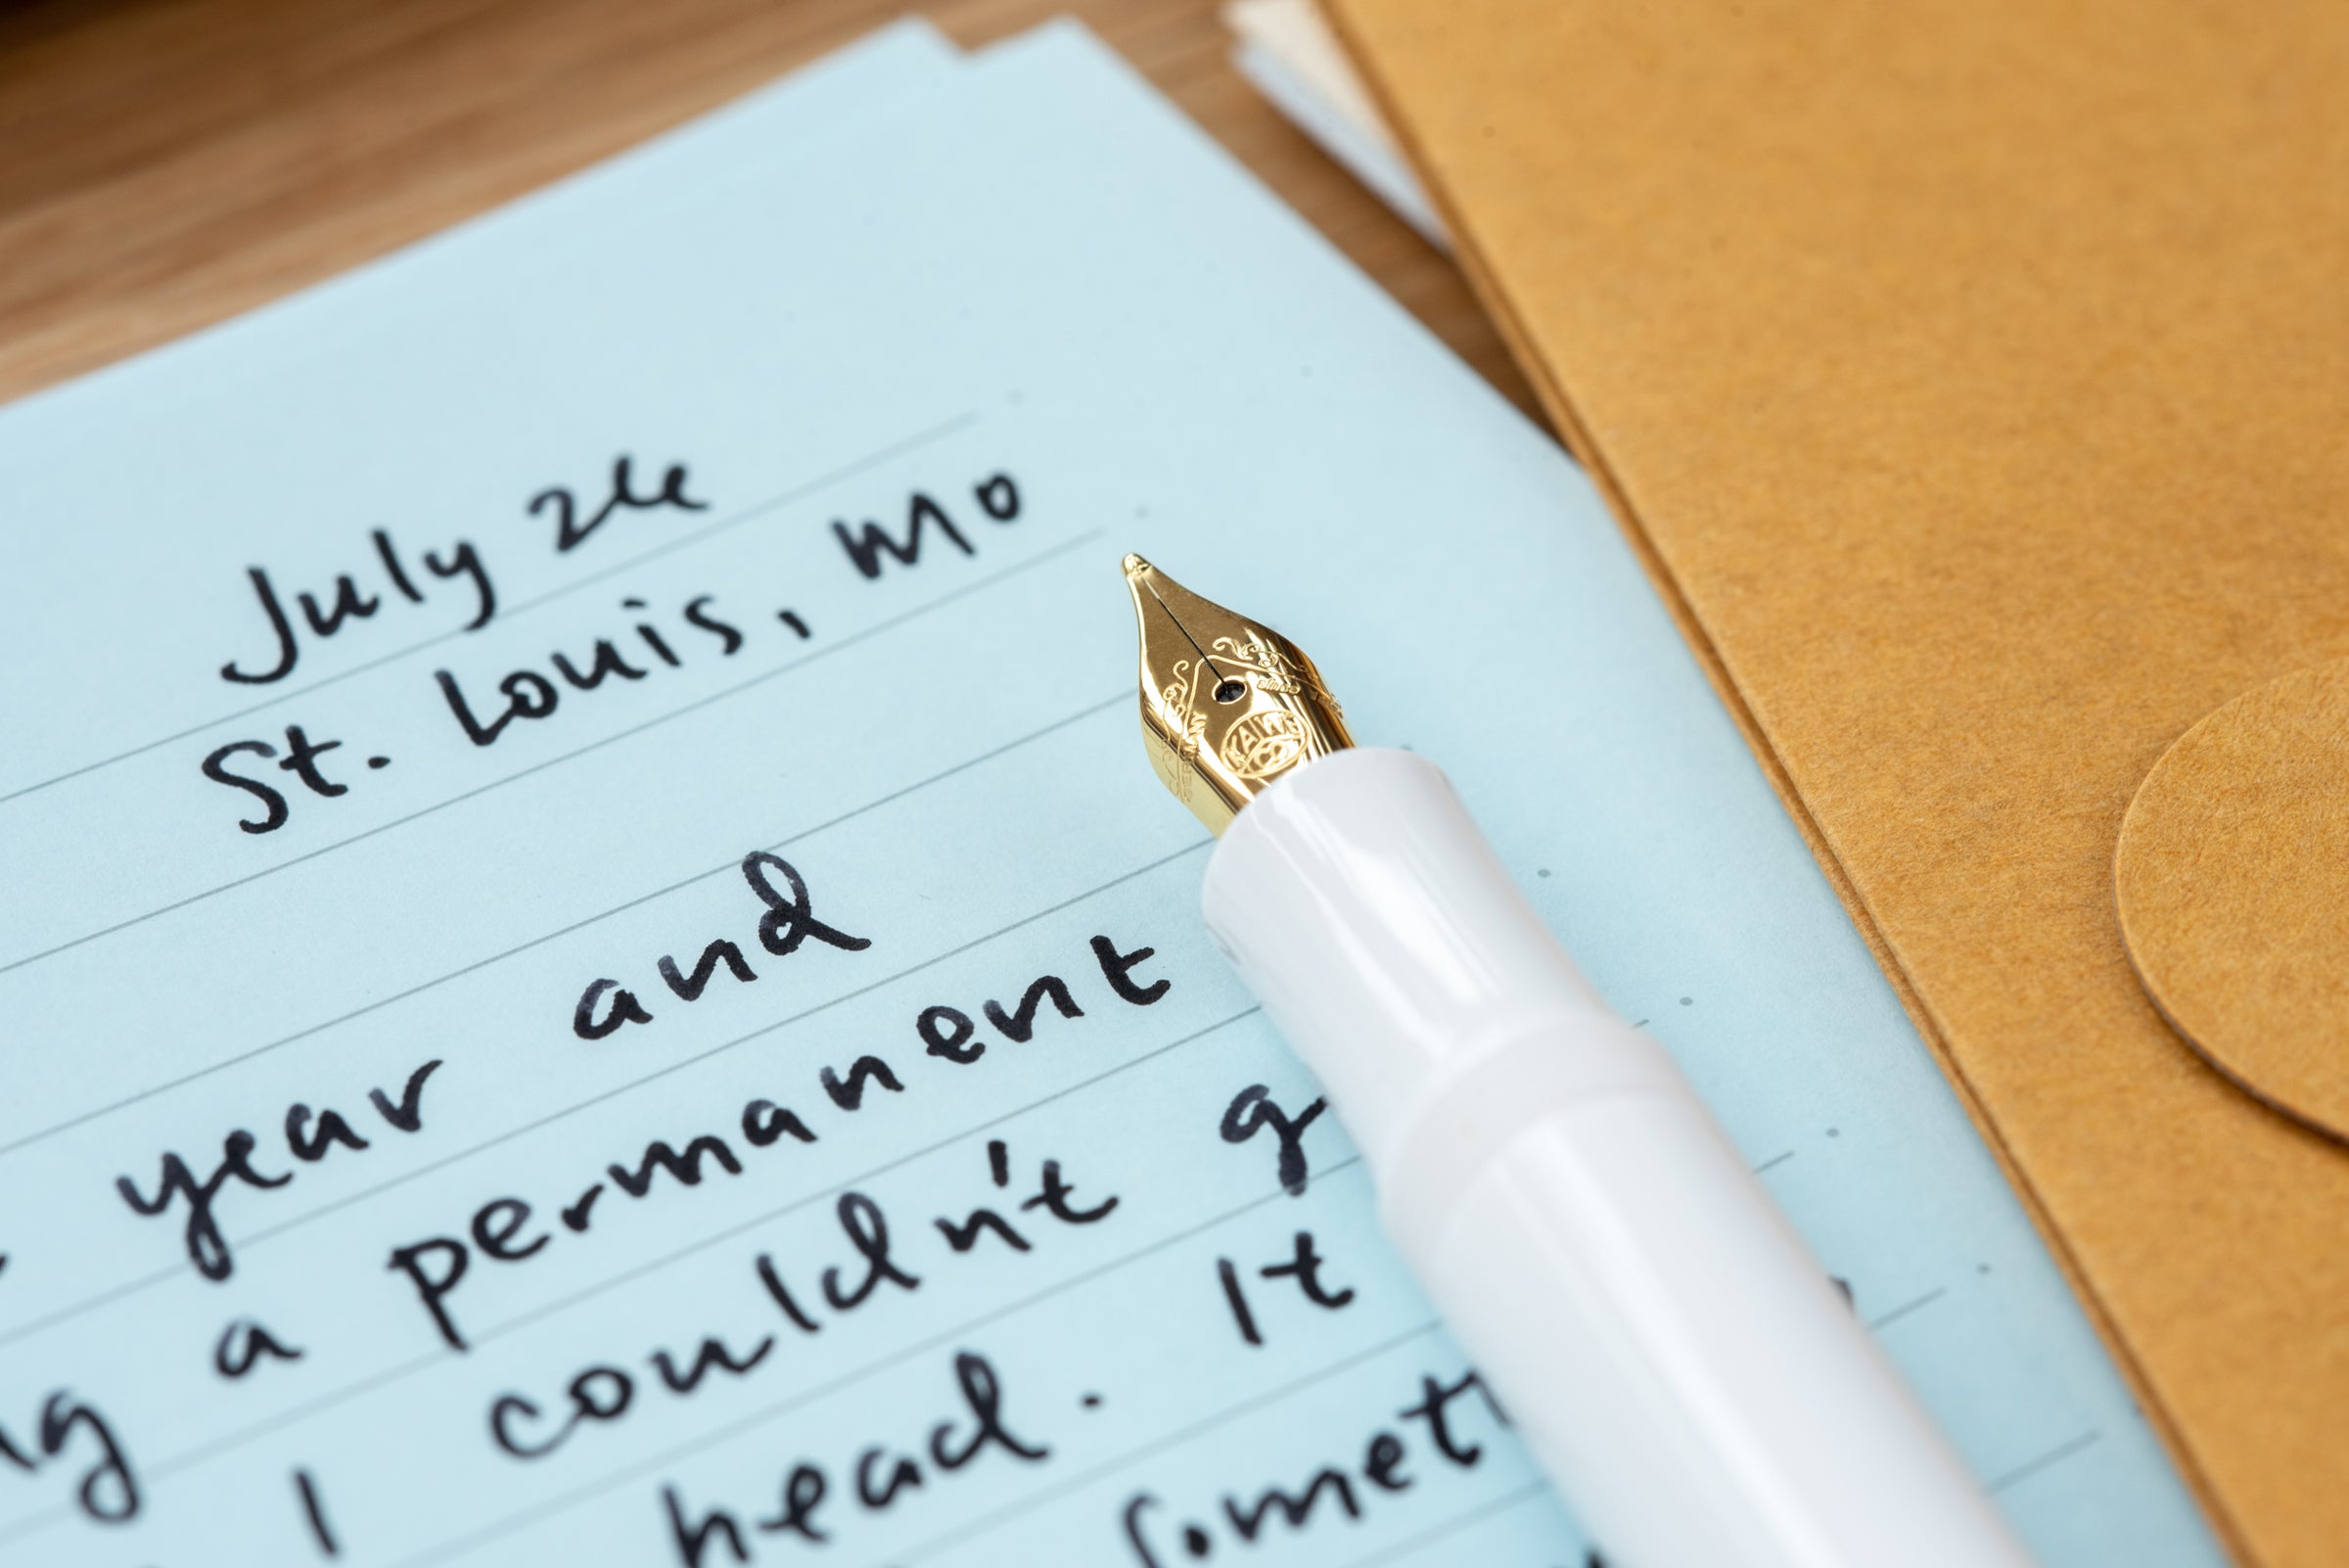 July 26
St. Louis, Mo
year and
a permanent
I couldn't
head. It
KAIWEI